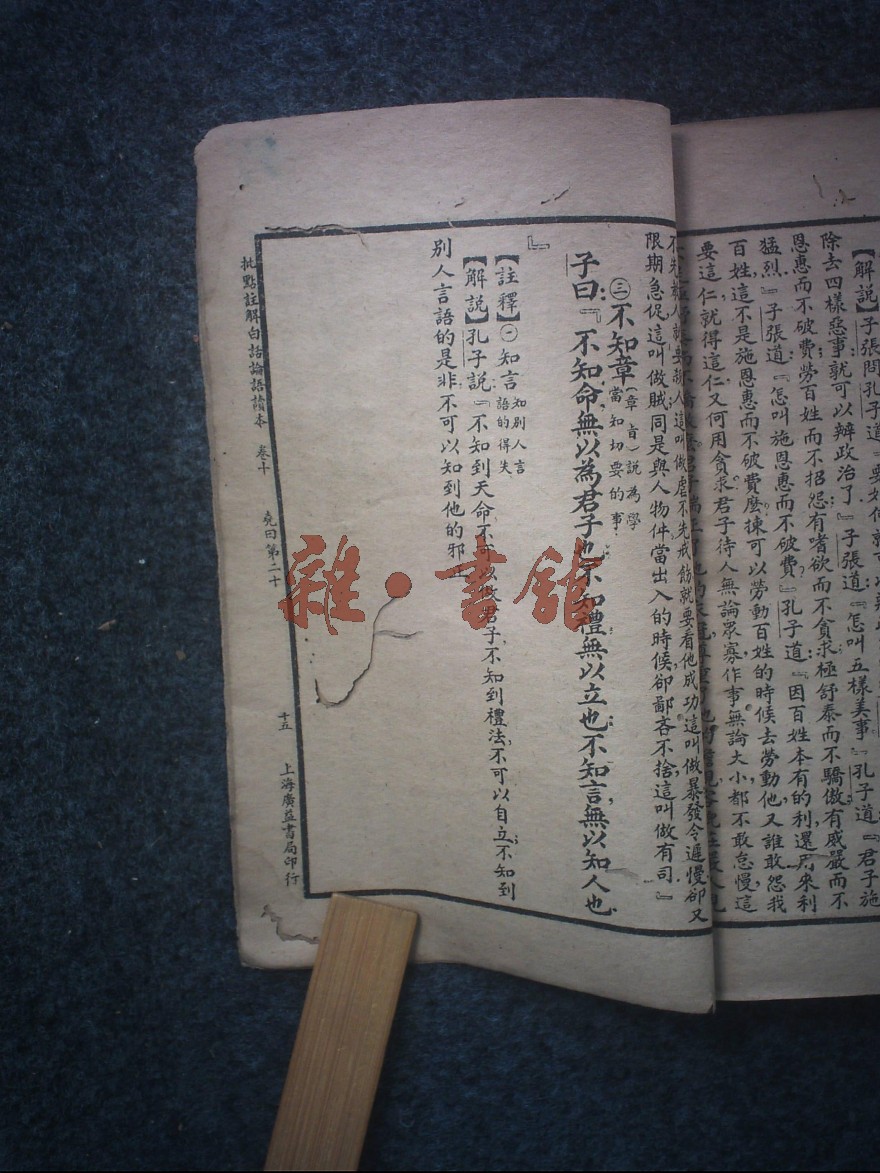 【解說】子張問孔子道『要如何就可以
除去四樣惡事就可以辦政治了』子張道『怎叫五樣美事』孔子道『君子施
恩惠而不破費勞百姓而不招怨有嗜欲而不貪求極舒泰而不驕傲有威嚴而不
猛烈』子張道『怎叫施恩惠而不破費』孔子道『因百姓本有的利還用來利
百姓這不是施恩惠而不破費麼揀可以勞動百姓的時候去勞動他又誰敢怨我
要這仁就得這仁又何用貪求君子待人無論眾寡作事無論大小都不敢怠慢這
這叫做虐不先戒飭就要看他成功這叫做暴發令遲慢卻又
限期急促這叫做賊同是與人物件當出入的時候卻鄙吝不捨這叫做有司』
』
㊂不知章（章旨）說為學當知切要的事
子曰『不知命無以為君子也不知禮無以立也不知言無以知人也
【註釋】㊀知言知別人言語的得失
【解說】孔子說『不知到天命不可以做君子不知到禮法不可以自立不知到
別人言語的是非不可以知到他的邪正
批點註解白話論語讀本 卷十 堯曰第二十 十五 上海廣益書局印行
雜·書館